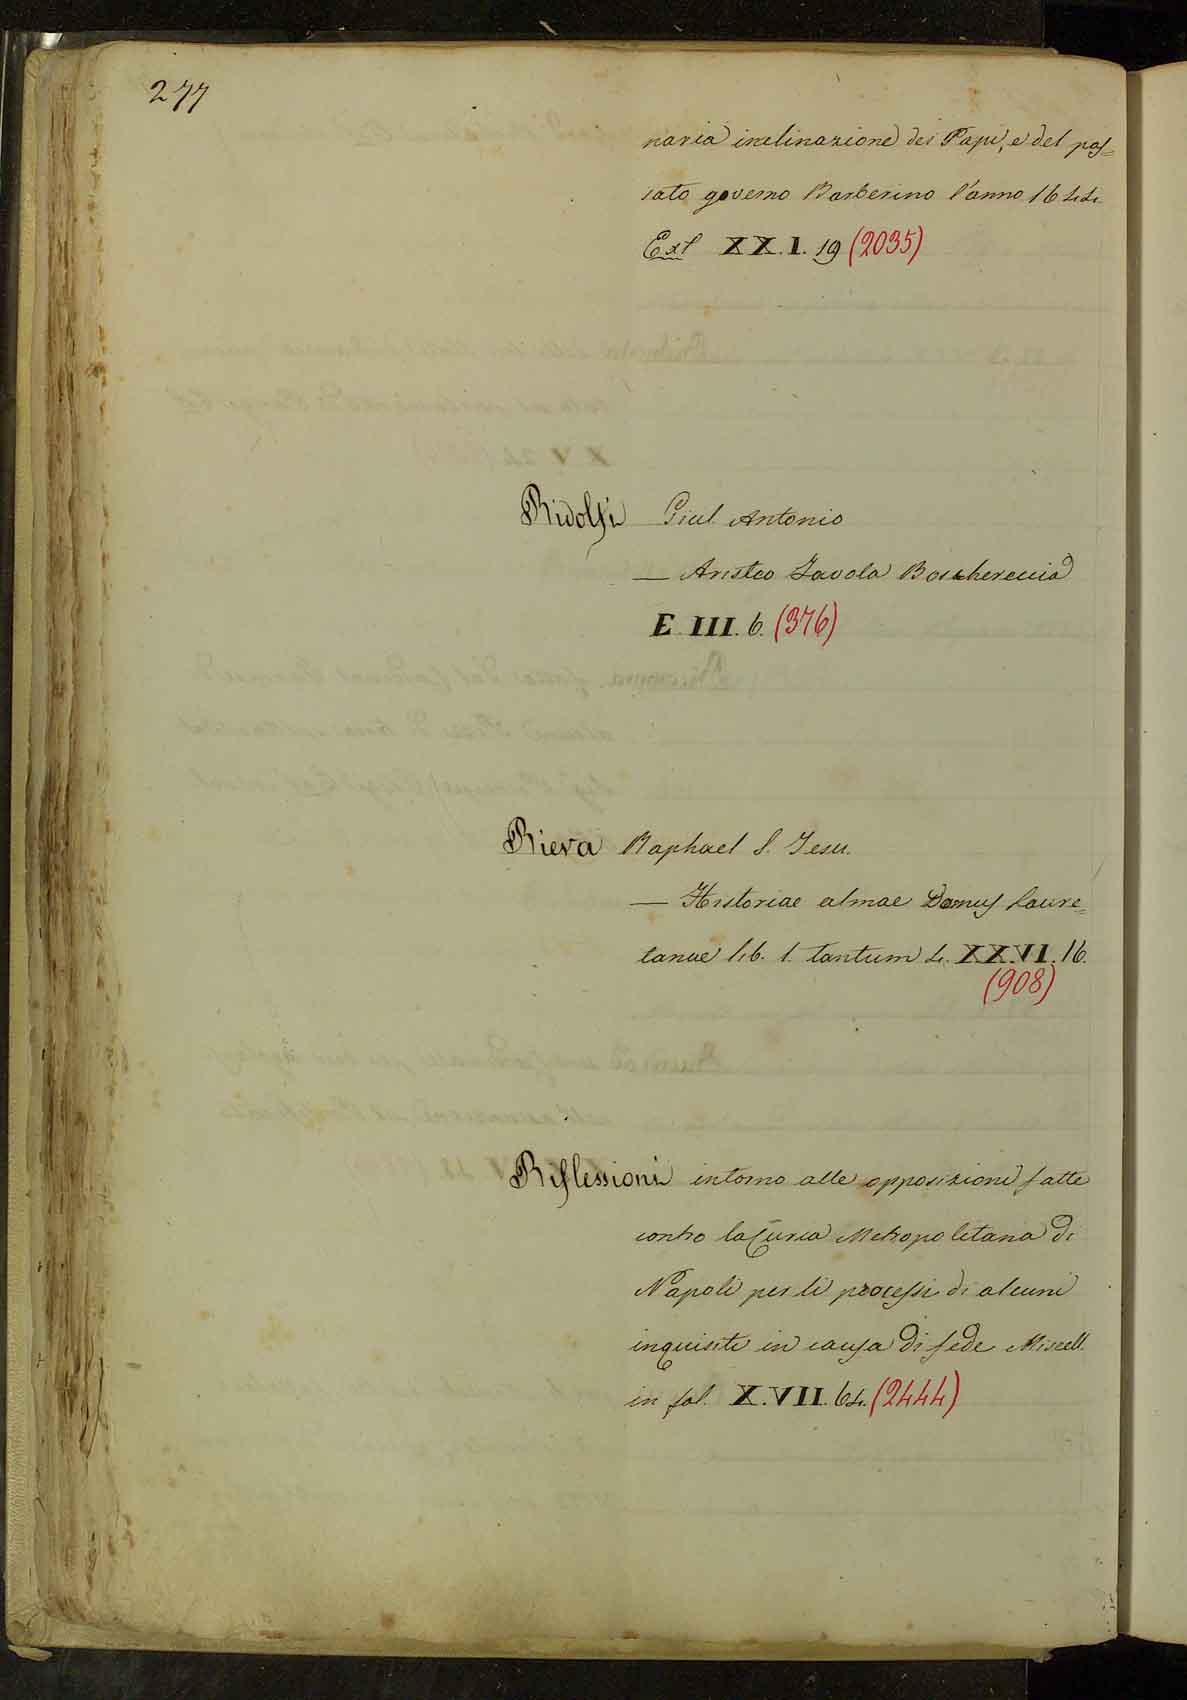 277
naria inclinazione dei Papi, e del pas=
sato governo Barberino l'anno 1644.
Ext XX.1. 19 (2035)
Ridolfi Giul. Antonio
— Aristeo Favola Boschereccia
E. III. 6. (376)
Riera Raphael S. Jesu.
— Historiae almae Domus Laure=
tanae lib. 1. tantum 4. XXVI. 16.
(908)
Riflessioni intorno alle opposizioni fatte
contro la Curia Metropolitana di
Napoli per li processi di alcuni
inquisiti in causa di fede Miscell.
in fol. X.VII. 64. (2444)